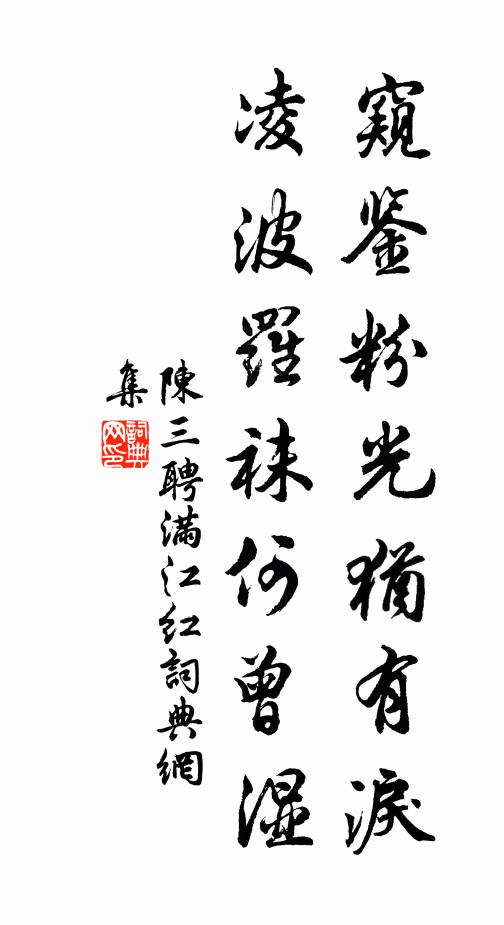 窺鉴粉光猶有淚
凌波羅袜何曾濕
陳三聘滿江紅詞典網
集
詞典网印